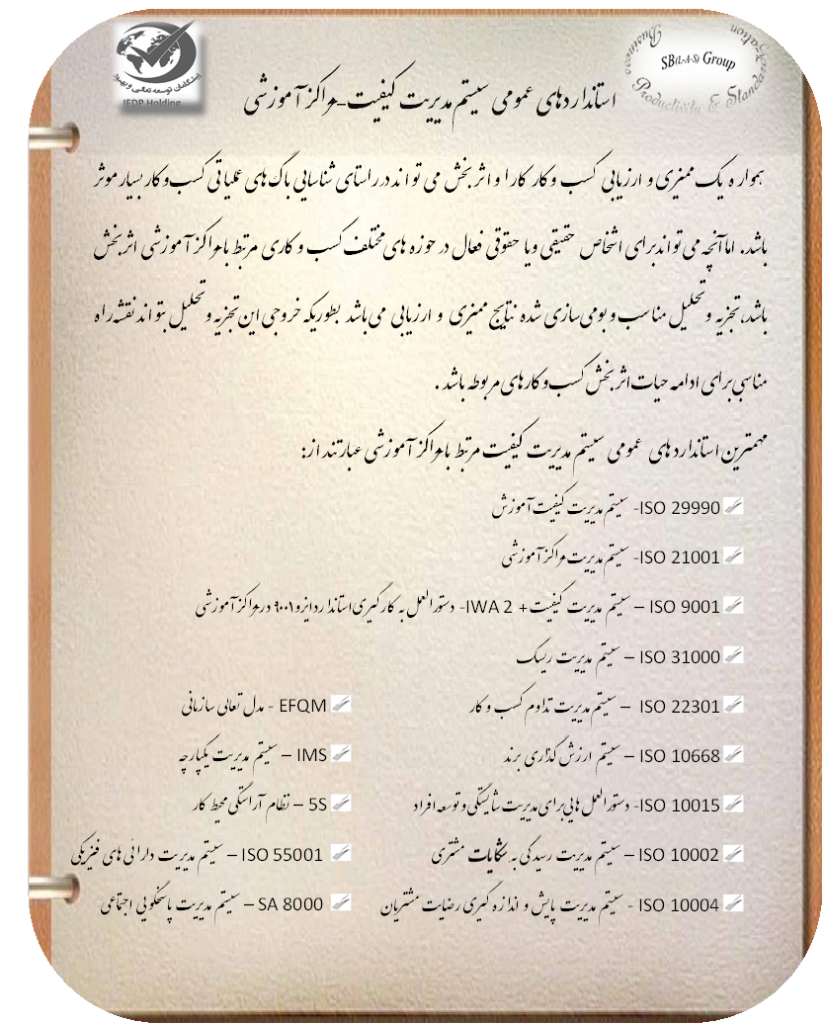 پیشگامان توسعه تعالی و بهبود
IEDP Holding
SB(L-A-S) Group
Business
Standardization
Productivity &
استانداردهای عمومی سیستم مدیریت کیفیت-مراکز آموزشی
همواره یک ممیزی و ارزیابی کسب و کار کارا و اثربخش می تواند در راستای شناسایی باگ های عملیاتی کسب و کار بسیار موثر
باشد. اما آنچه می تواند برای اشخاص حقیقی ویا حقوقی فعال در حوزه های مختلف کسب و کاری مرتبط با مراکز آموزشی اثربخش
باشد، تجزیه و تحلیل مناسب و بومی سازی شده نتایج ممیزی و ارزیابی می باشد بطوریکه خروجی این تجزیه و تحلیل بتواند نقشه راه
مناسبی برای ادامه حیات اثربخش کسب و کارهای مربوطه باشد .
مهمترین استاندارد های عمومی سیستم مدیریت کیفیت مرتبط با مراکز آموزشی عبارتند از:
ISO 29990- سیستم مدیریت کیفیت آموزش
ISO 21001- سیستم مدیریت مراکز آموزشی
ISO 9001 – سیستم مدیریت کیفیت + IWA 2- دستورالعمل به کارگیری استاندارد ایزو ۹۰۰۱ در مراکز آموزشی
ISO 31000 – سیستم مدیریت ریسک
ISO 22301 – سیستم مدیریت تداوم کسب و کار
ISO 10668 – سیستم ارزش گذاری برند
ISO 10015- دستورالعمل هایی برای مدیریت شایستگی و توسعه افراد
ISO 10002 – سیستم مدیریت رسیدگی به شکایات مشتری
ISO 10004 - سیستم مدیریت پایش و اندازه گیری رضایت مشتریان
EFQM - مدل تعالی سازمانی
IMS – سیستم مدیریت یکپارچه
5S – نظام آراستگی محیط کار
ISO 55001 – سیستم مدیریت دارائی های فیزیکی
SA 8000 – سیستم مدیریت پاسخگویی اجتماعی